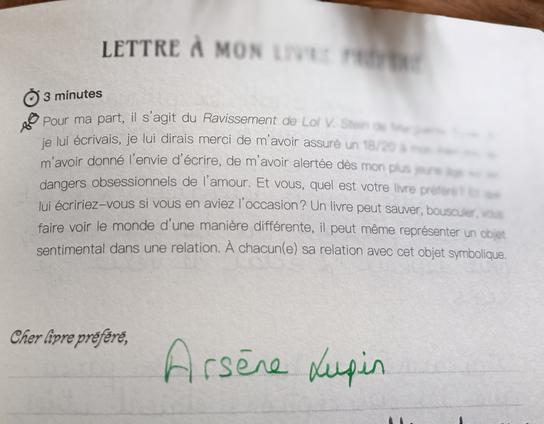 LETTRE À MON LIVRE PRÉFÉRÉ
3 minutes
Pour ma part, il s'agit du Ravissement de Lol V. Stein de Marguerite
je lui écrivais, je lui dirais merci de m'avoir assuré un 18/20 à mon
m'avoir donné l'envie d'écrire, de m'avoir alertée dès mon plus jeune âge
dangers obsessionnels de l'amour. Et vous, quel est votre livre préféré ? Et que
lui écririez-vous si vous en aviez l'occasion? Un livre peut sauver, bousculer, vous
faire voir le monde d'une manière différente, il peut même représenter un objet
sentimental dans une relation. À chacun(e) sa relation avec cet objet symbolique.
Cher livre préféré,
Arsēne Lupin